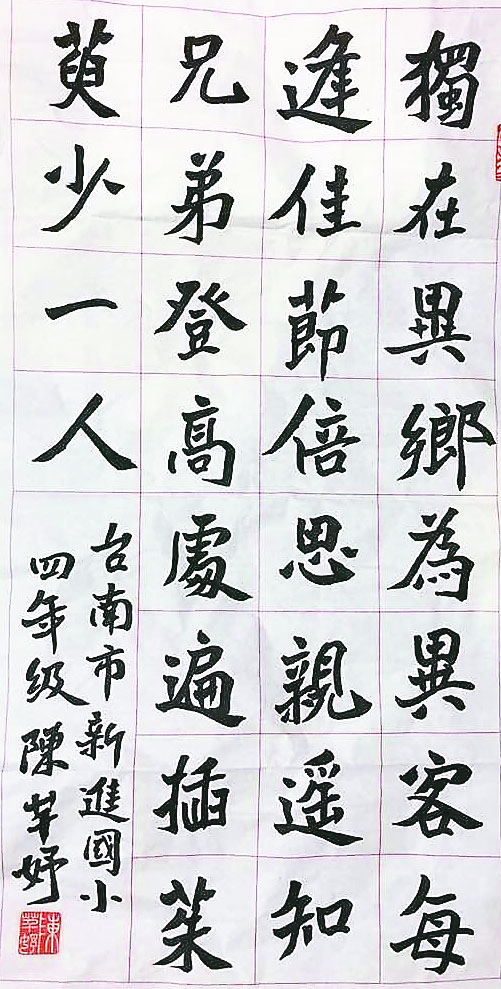 獨在異鄉為異客每
逢佳節倍思親遥知
兄弟登高處遍插茱
萸少一人
台南市新進國小
四年级陳芊妤